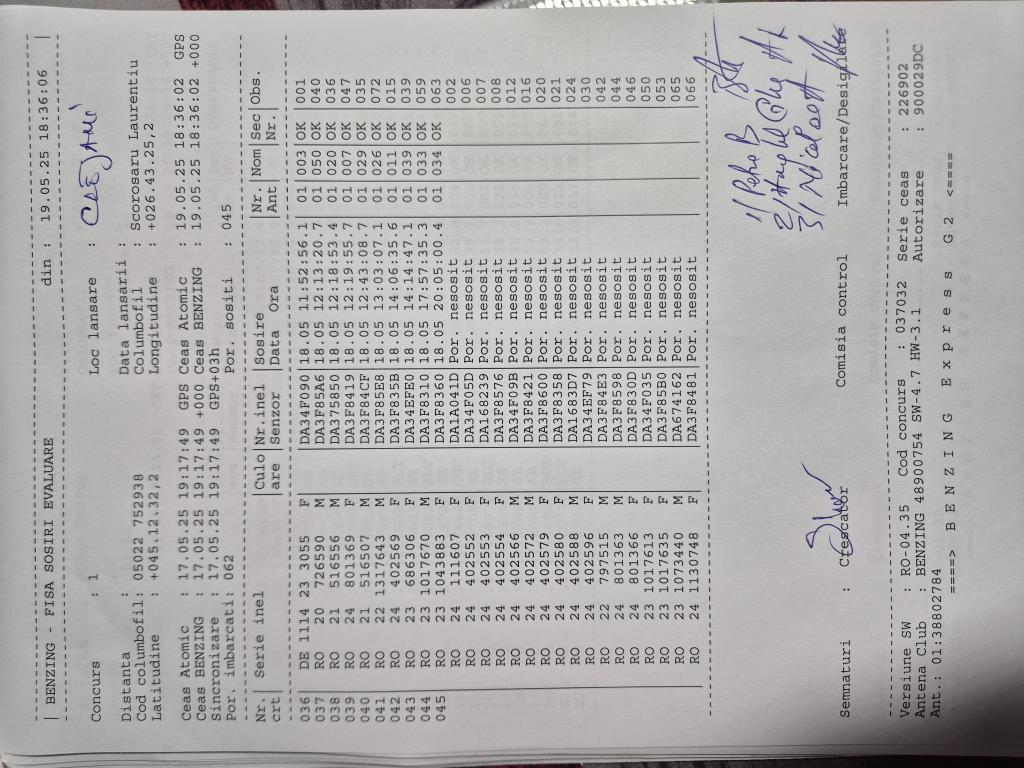 | BENZING - FISA SOSIRI EVALUARE din : 19.05.25 18:36:06 |
Concurs : 1 Loc lansare :
Distanta : Data lansarii :
Cod columbofil: 05022 752938 Columbofil : Scorosaru Laurentiu
Latitudine : +045.12.32,2 Longitudine : +026.43.25,2
Ceas Atomic : 17.05.25 19:17:49 GPS Ceas Atomic : 19.05.25 18:36:02 GPS
Ceas BENZING : 17.05.25 19:17:49 +000 Ceas BENZING : 19.05.25 18:36:02 +000
Sincronizare : 17.05.25 19:17:49 GPS+03h
Por. imbarcati: 062 Por. sositi : 045
Nr.| Serie inel |Culo|Nr.inel |Sosire |Nr. |Nom|Sec|Obs.
crt| |are |Senzor |Data Ora |Ant| |Nr.|
036 DE 1114 23 3055 F DA34F090 18.05 11:52:56.1 01 003 OK 001
037 RO 20 726590 M DA3F85A6 18.05 12:13:20.7 01 050 OK 040
038 RO 21 516556 M DA375850 18.05 12:18:53.4 01 020 OK 036
039 RO 24 801369 F DA3F8419 18.05 12:19:55.7 01 007 OK 047
040 RO 21 516507 M DA3F84CF 18.05 12:43:08.7 01 029 OK 035
041 RO 22 1317643 M DA3F85E8 18.05 13:03:07.1 01 026 OK 072
042 RO 24 402569 F DA3F835B 18.05 14:06:35.6 01 011 OK 015
043 RO 23 686306 F DA34EFE0 18.05 14:14:47.1 01 039 OK 039
044 RO 23 1017670 M DA3F8310 18.05 17:57:35.3 01 033 OK 059
045 RO 23 1043883 F DA3F8360 18.05 20:05:00.4 01 034 OK 063
RO 24 111607 F DA1A041D Por. nesosit 002
RO 24 402552 F DA34F05D Por. nesosit 006
RO 24 402553 F DA168239 Por. nesosit 007
RO 24 402554 F DA3F8576 Por. nesosit 008
RO 24 402566 M DA34F09B Por. nesosit 012
RO 24 402572 M DA3F8421 Por. nesosit 016
RO 24 402579 F DA3F8600 Por. nesosit 020
RO 24 402580 F DA3F8358 Por. nesosit 021
RO 24 402588 M DA1683D7 Por. nesosit 024
RO 24 402596 F DA34EF79 Por. nesosit 030
RO 22 797515 M DA3F84E3 Por. nesosit 042
RO 24 801363 M DA3F8598 Por. nesosit 044
RO 24 801366 F DA3F830D Por. nesosit 046
RO 23 1017613 F DA34F035 Por. nesosit 050
RO 23 1017635 F DA3F85B0 Por. nesosit 053
RO 23 1073440 M DA674162 Por. nesosit 065
RO 24 1130748 F DA3F8481 Por. nesosit 066
1/ Petro B
2/
3/
Semnaturi : Crescator Comisia control Imbarcare/Desigilare
Versiune SW : RO-04.35 Cod concurs : 037032 Serie ceas : 226902
Antena Club : BENZING 48900754 SW-4.7 HW-3.1 Autorizare : 900029DC
Ant.: 01:38802784
====> B E N Z I N G E x p r e s s G 2 <====